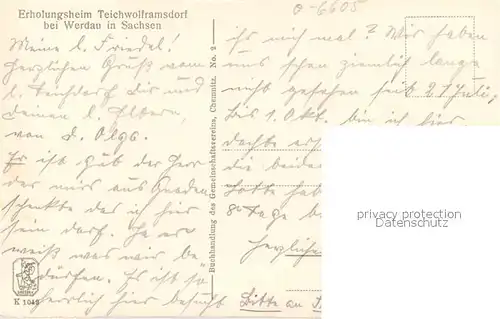 Erholungsheim Teichwolframsdorf
bei Werdau in Sachsen
o-6605
Meine l. Friedel!
Herzlichen Gruß vom
l. Teichdorf dir und
deinen l. Eltern,
von d. Olga.
Er ist gut der Herr
der mirs aus Gnaden
schenkte das ich hier
sein darf. Ja er
weiß was wir be-
dürfen. Es ist so
herrlich hier
K 1048
Buchhandlung des Gemeinschaftsvereins, Chemnitz. No. 2
ihr mich mal? Wir haben
uns schon ziemlich lange
nicht gesehen seit 21. Juli,
bis 1. Okt. bin ich hier
die beiden
Lotte
8 Tage
Herzliche
Bitte an
privacy protection
Datenschutz